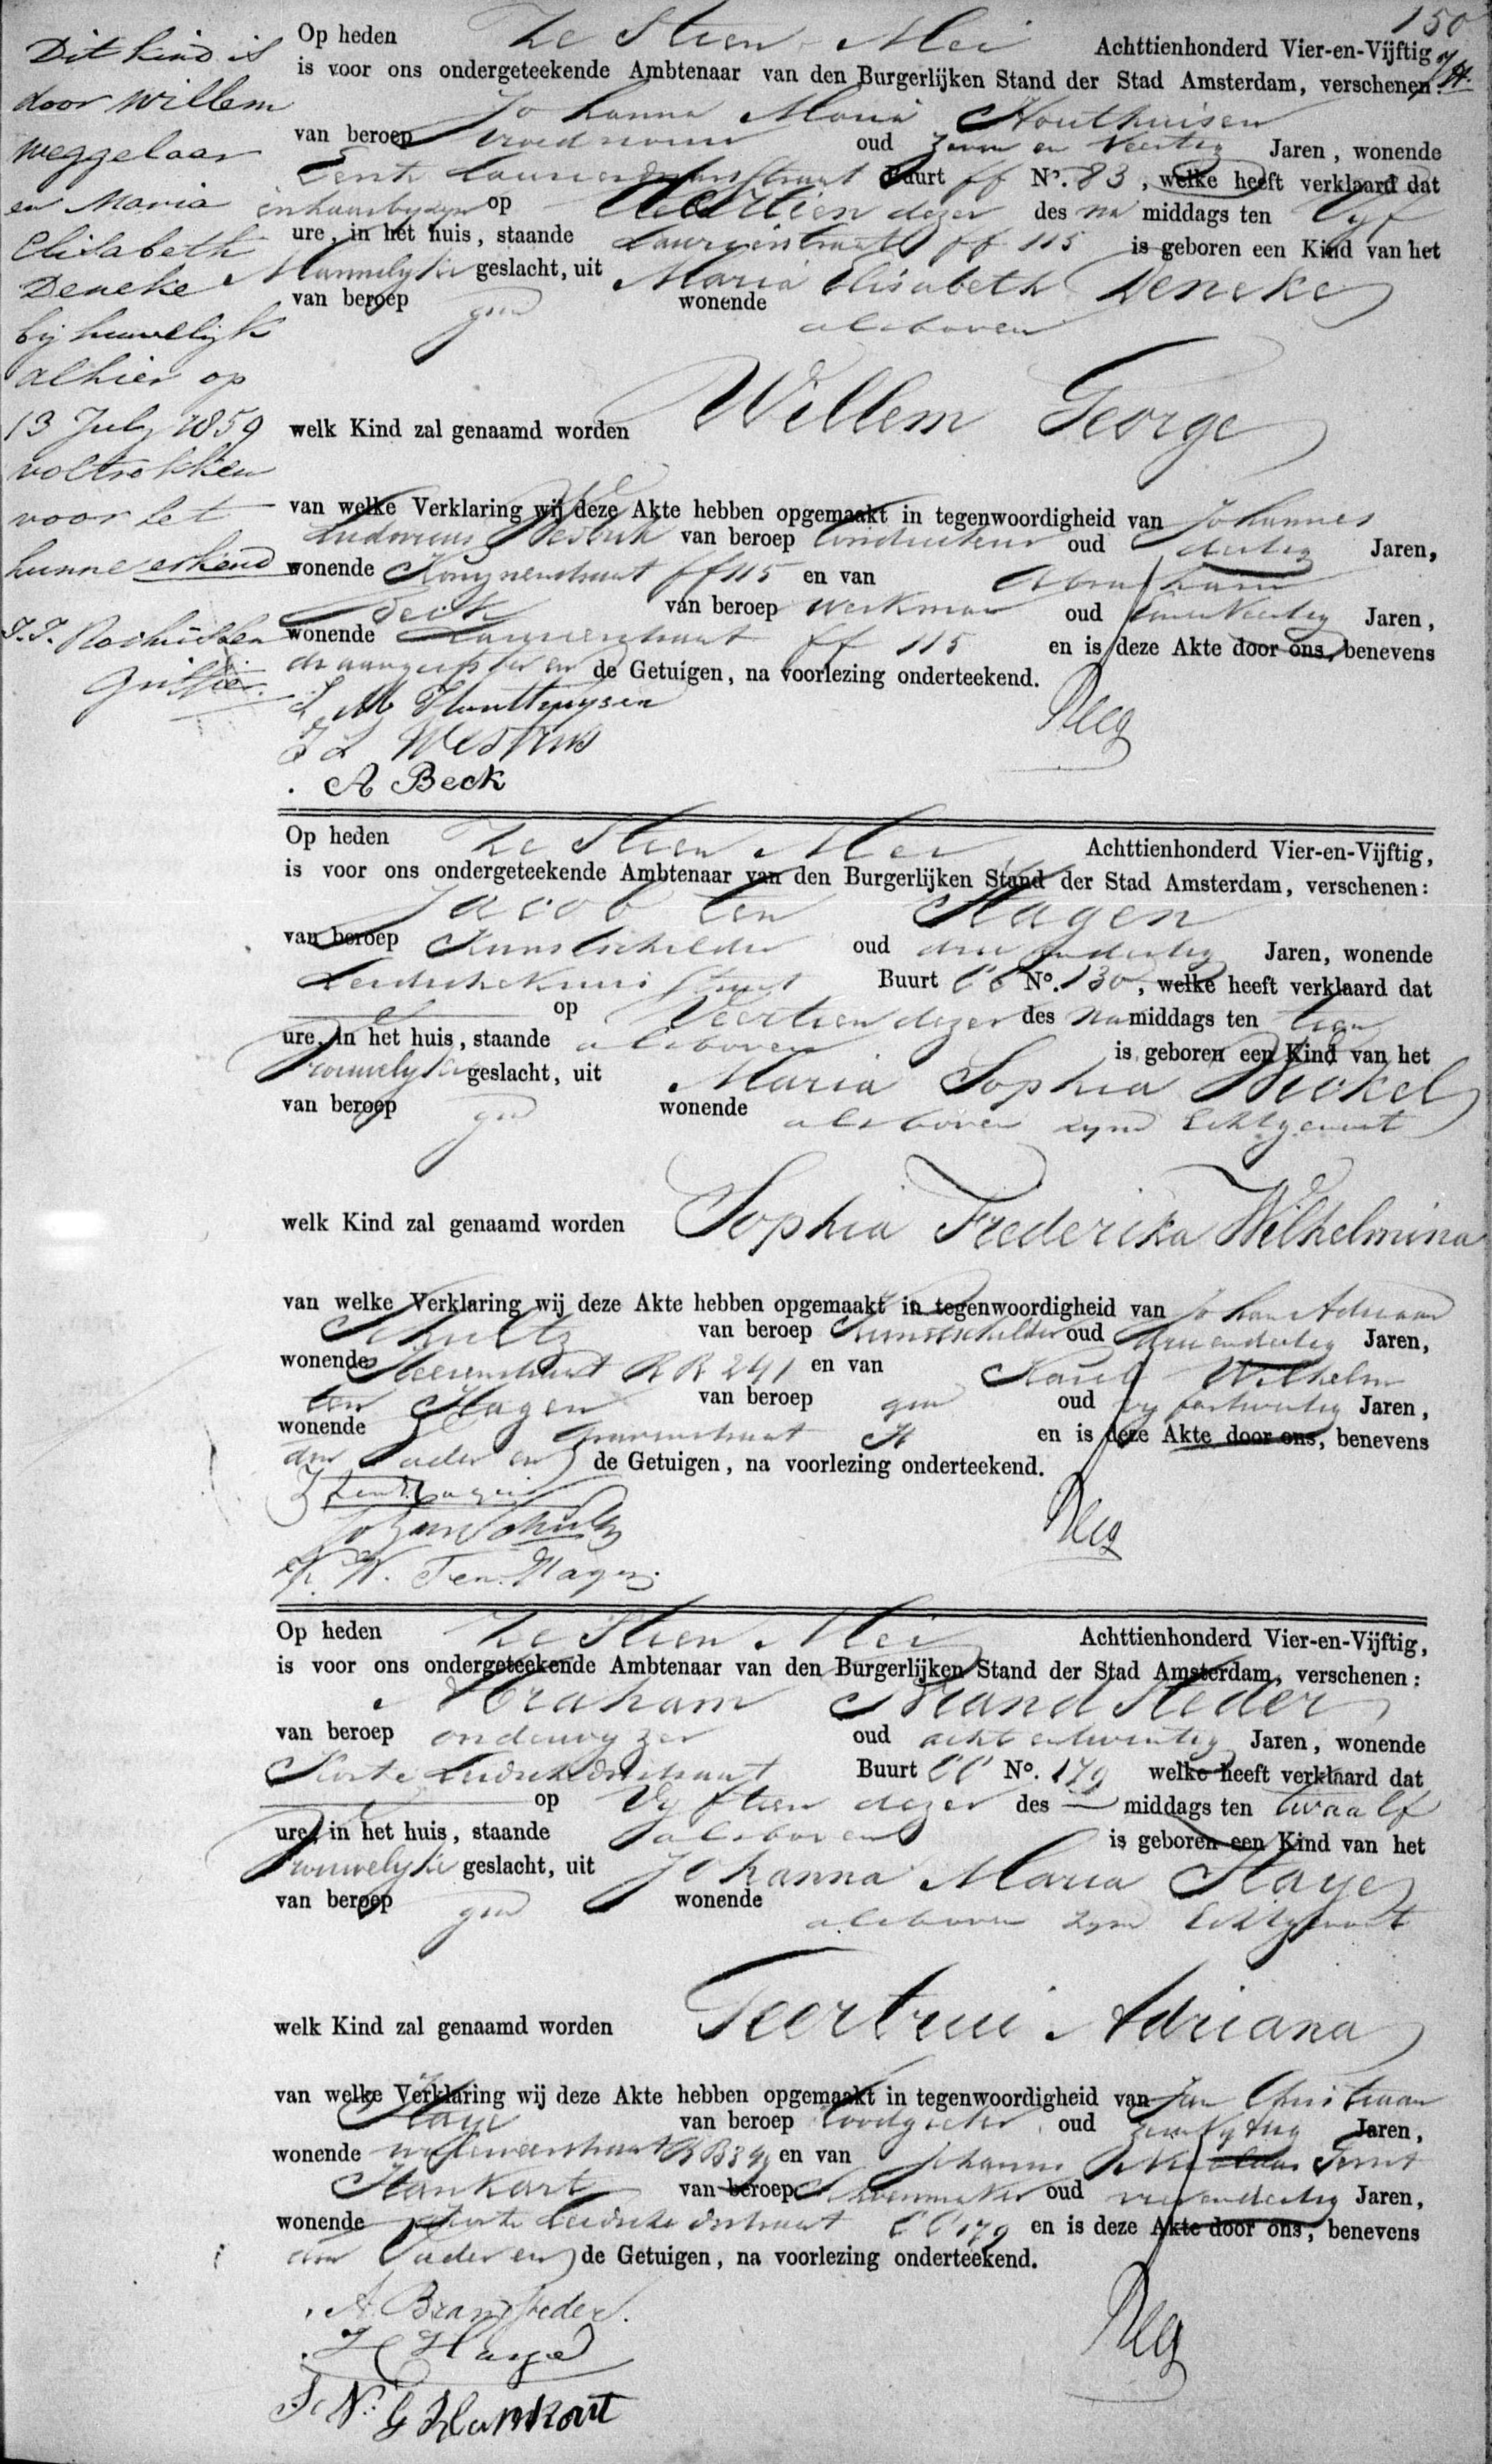 150
Dit kind is
door Willem
Meggelaar
en Maria
Elisabeth
Deneke
bij huwelijk
alhier op
13 July 1859
voltrokken
voor het
hunne erkend
Griffier.
Op heden Zestien Mei Achttienhonderd Vier-en-Vijftig,
is voor ons ondergeteekende Ambtenaar van den Burgerlijken Stand der Stad Amsterdam, verschenen:
Johanna Maria Houthuisen
van beroep vroedvrouw oud zeven en veertig Jaren, wonende
Eerste Laurierdwarsstraat Buurt ff No. 83, welke heeft verklaard dat
in haar byzyn op Veertien dezer des na middags ten vyf
ure, in het huis, staande Laurierstraat ff 115 is geboren een Kind van het
Mannelyke geslacht, uit Maria Elisabeth Deneke
van beroep geen wonende alsboven
welk Kind zal genaamd worden Willem George
van welke Verklaring wij deze Akte hebben opgemaakt in tegenwoordigheid van Johannes
Ludovicus van beroep Conducteur oud dertig Jaren,
wonende Konynenstraat ff 115 en van Abraham
Beck van beroep werkman oud Jaren,
wonende Laurierstraat ff 115 en is deze Akte door ons, benevens
de aangeefster en de Getuigen, na voorlezing onderteekend.
J. M. Houthuysen
J L
A Beck
Op heden Zestien Mei Achttienhonderd Vier-en-Vijftig,
is voor ons ondergeteekende Ambtenaar van den Burgerlijken Stand der Stad Amsterdam, verschenen:
Jacob ten Hagen
van beroep Kunstschilder oud drie en dertig Jaren, wonende
Leidschekruisstraat Buurt CC No. 130, welke heeft verklaard dat
op Veertien dezer des na middags ten tien
ure, in het huis, staande alsboven is geboren een Kind van het
Vrouwelyke geslacht, uit Maria Sophia Bickel
van beroep geen wonende alsboven zyne Echtgenoot
welk Kind zal genaamd worden Sophia Frederika Wilhelmina
van welke Verklaring wij deze Akte hebben opgemaakt in tegenwoordigheid van Johan Adriaan
Schultz van beroep Kunstschilder oud drie en dertig Jaren,
wonende Heerenstraat RR 241 en van Karel Wilhelm
ten Hagen van beroep geen oud vyf en twintig Jaren,
wonende Gravenstraat H en is deze Akte door ons, benevens
den Vader en de Getuigen, na voorlezing onderteekend.
J ten Hagen
Johan Schultz
K. W. Ten Hagen.
Op heden Zestien Mei Achttienhonderd Vier-en-Vijftig,
is voor ons ondergeteekende Ambtenaar van den Burgerlijken Stand der Stad Amsterdam, verschenen:
Abraham Brandsteder
van beroep onderwyzer oud acht en twintig Jaren, wonende
Korte Leidschedwarsstraat Buurt CC No. 179 welke heeft verklaard dat
op Vyftien dezer des — middags ten twaalf
ure, in het huis, staande alsboven is geboren een Kind van het
Vrouwelyke geslacht, uit Johanna Maria Haye
van beroep geen wonende alsboven zyne Echtgenoot
welk Kind zal genaamd worden Geertrui Adriana
van welke Verklaring wij deze Akte hebben opgemaakt in tegenwoordigheid van Jan Christiaan
Haye van beroep Loodgieter oud Jaren,
wonende en van Johannes Nicolaas Gerrit
Hankart van beroep Schoenmaker oud vier en dertig Jaren,
wonende Korte Leidschedwarsstraat CC 179 en is deze Akte door ons, benevens
den Vader en de Getuigen, na voorlezing onderteekend.
A. Brandsteder.
Haye
J. N. G Hankart